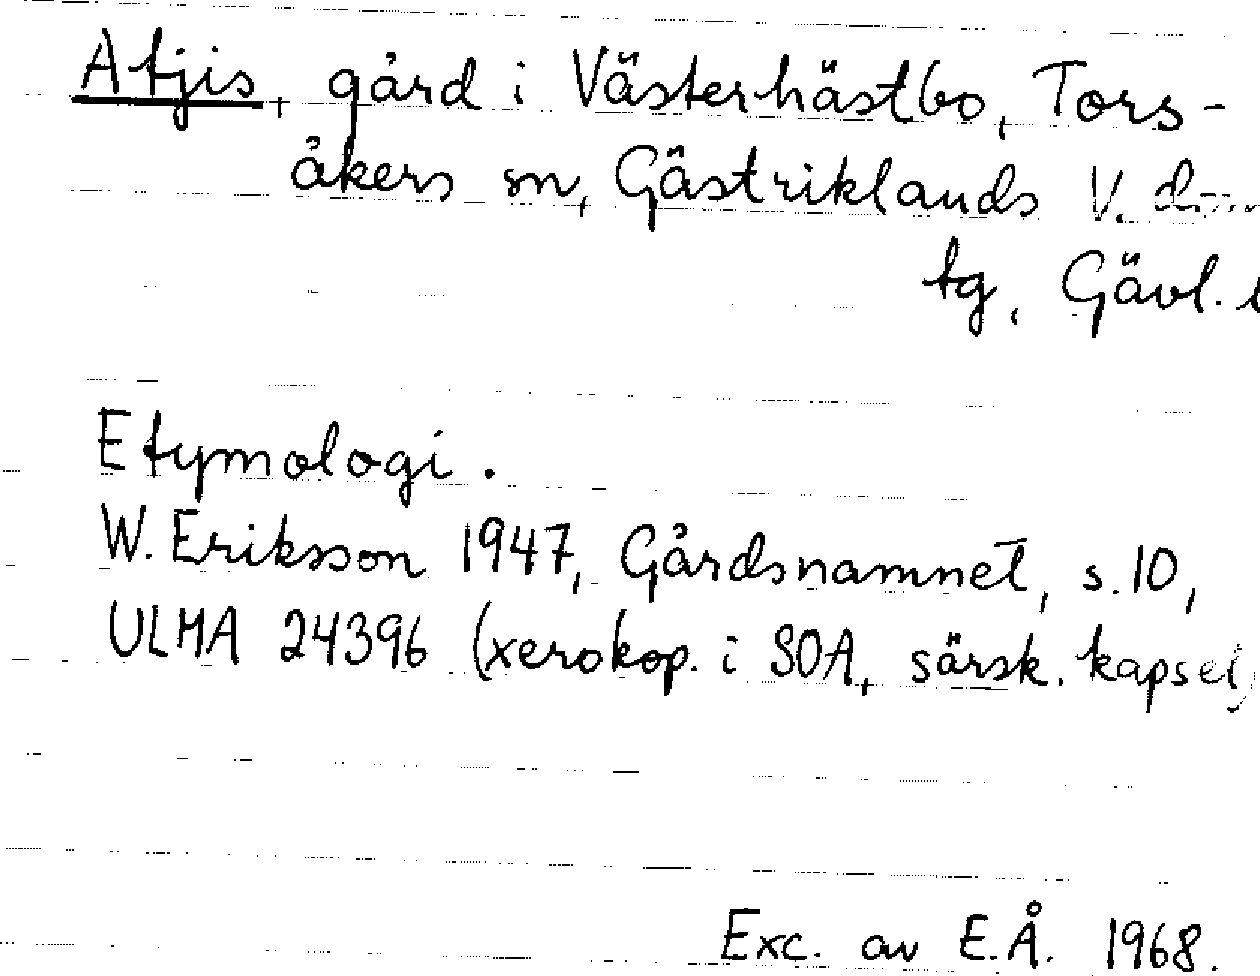 Atjis, gård i Västerhästbo, Tors-
åkers sn, Gästriklands V.
tg, Gävl.
Etymologi.
W. Eriksson 1947, Gårdsnamnet, s. 10,
ULMA 24396 (xerokop. i SOA, särsk. kapsel)
Exc. av E.Å. 1968.